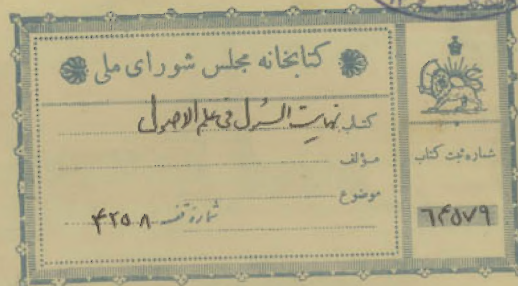 کتابخانه مجلس شورای ملی
کتاب نهایت السئول فی علم الاصول
مؤلف
موضوع
شمارهٔ قفسه ۴۲۵۸
شماره ثبت کتاب
۶۴۵۷۹